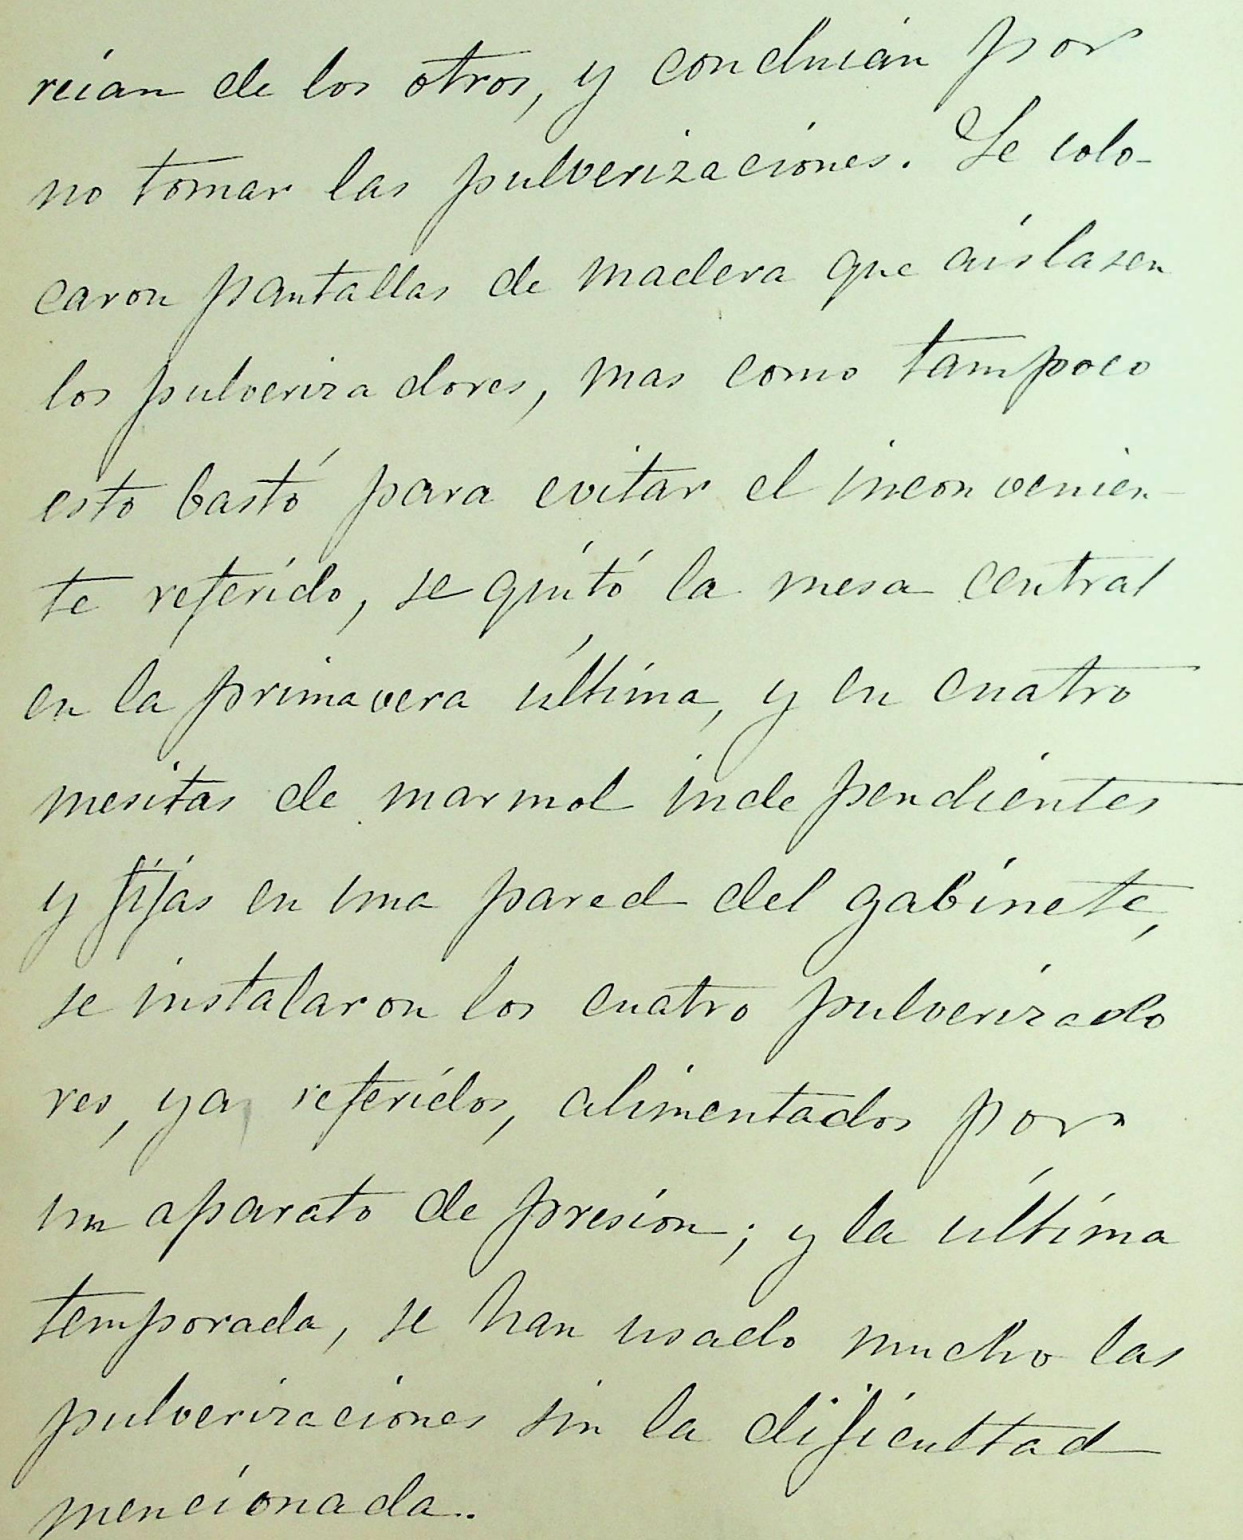 reían de los otros, y concluían por
no tomar las pulverizaciones. Se colo-
caron pantallas de madera que aislasen
los pulverizadores, mas como tampoco
esto bastó para evitar el inconvenien-
te referido, se quitó la mesa central
en la primavera última, y en cuatro
mesitas de marmol independientes
y fijas en una pared del gabinete,
se instalaron los cuatro pulverizado
res, ya referidos, alimentados por
un aparato de presion; y la última
temporada, se han usado mucho las
pulverizaciones sin la dificultad
mencionada..